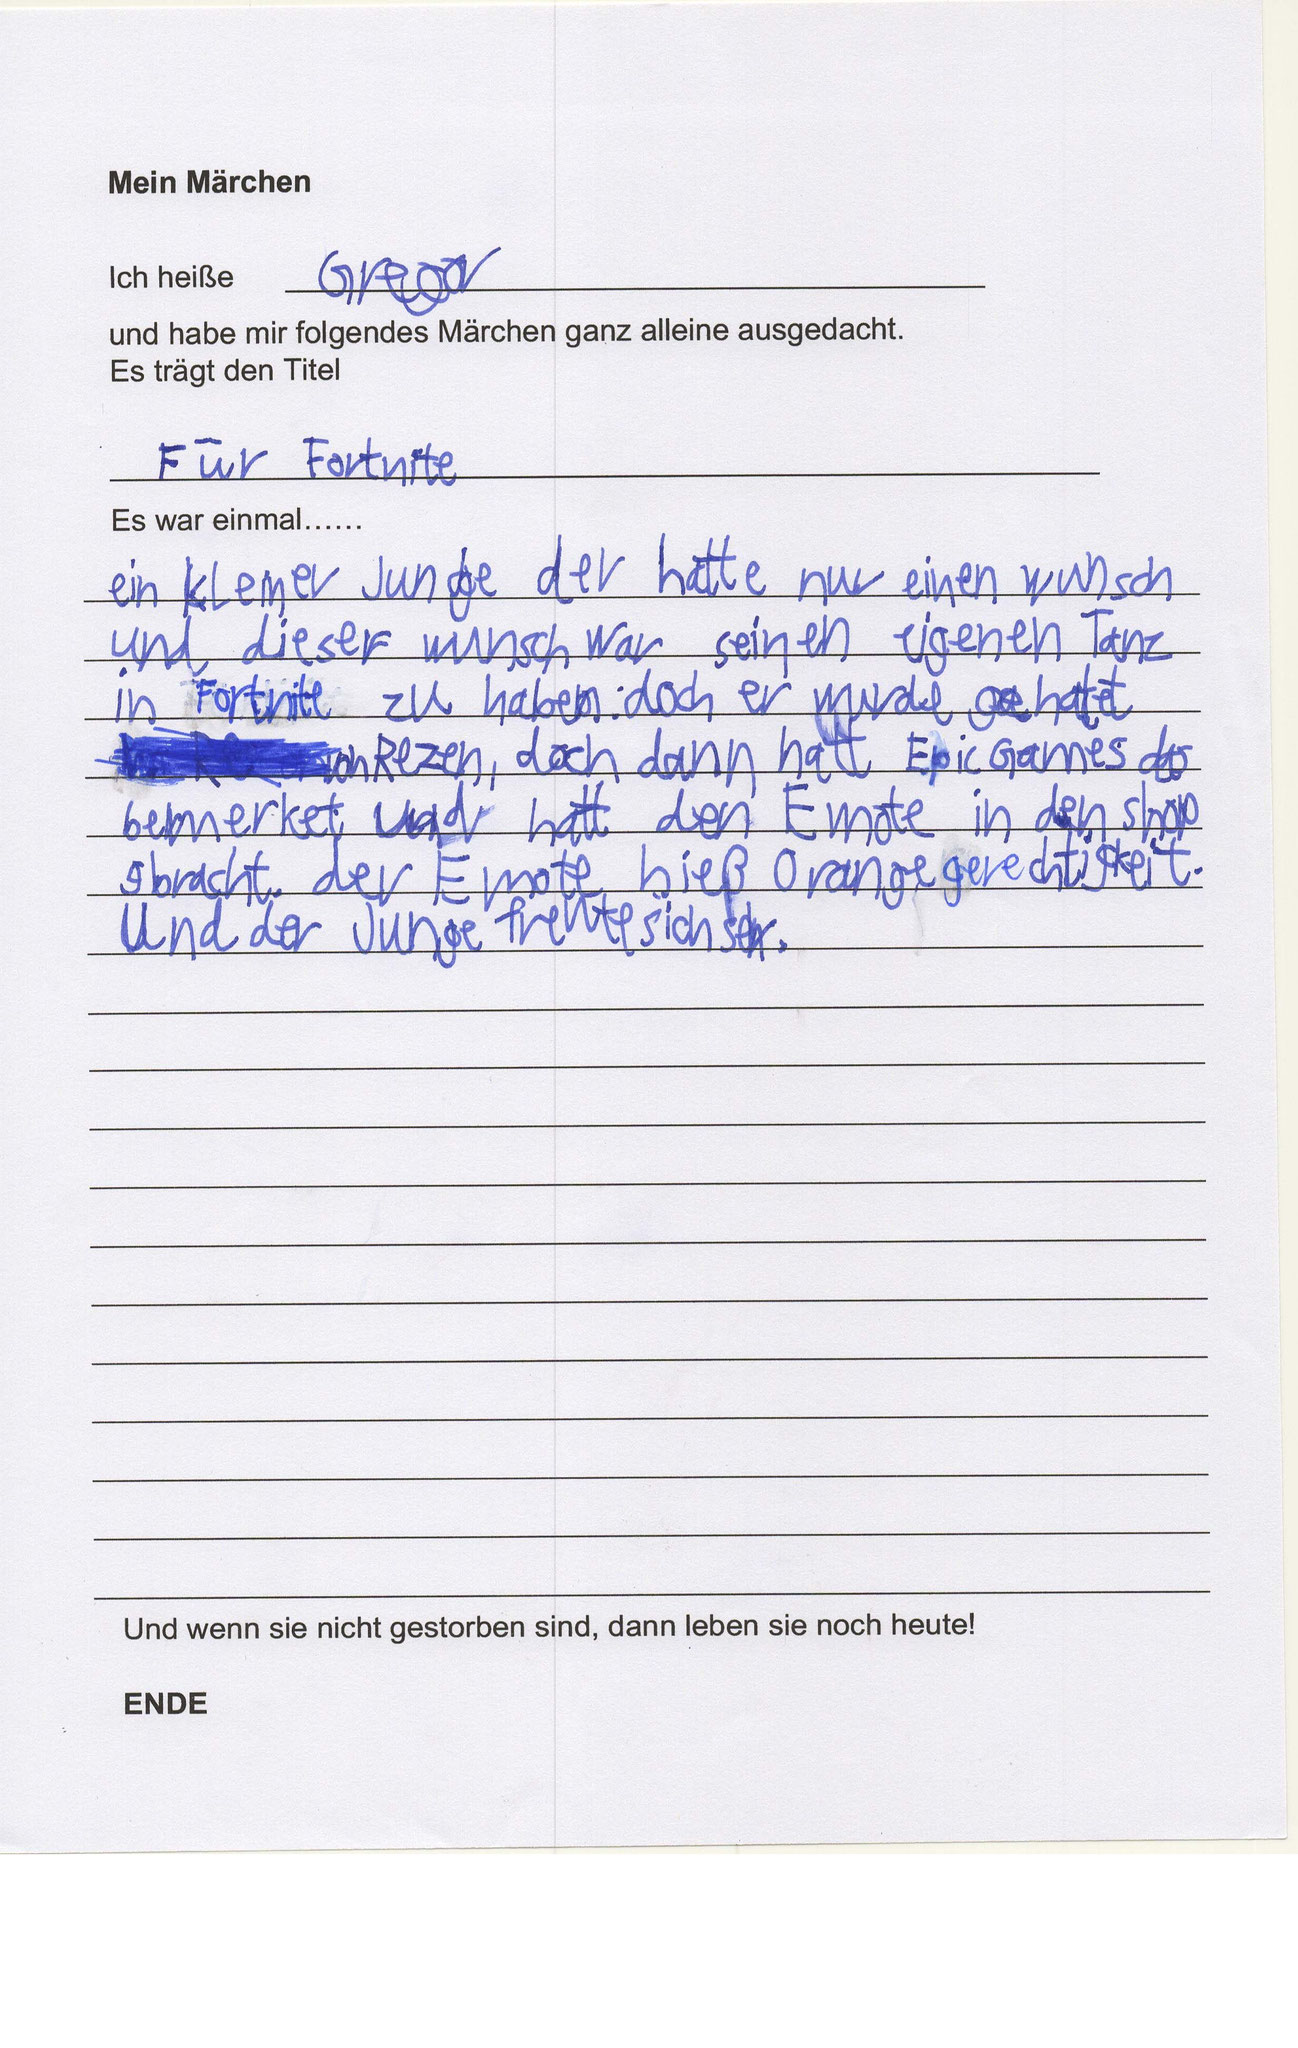 Mein Märchen
Ich heiße Gregor
und habe mir folgendes Märchen ganz alleine ausgedacht.
Es trägt den Titel
Für Fortnite
Es war einmal……
ein kleiner Junge der hatte nur einen wunsch
und dieser wunsch war seinen eigenen Tanz
in Fortnite zu haben. doch er wurde gehatet
von Rezen, doch dann hatt Epic Games das
bemerket und hatt den Emote in den shop
gbracht. der Emote hieß Orangegerechtigkeit.
Und der Junge freute sich sehr.
Und wenn sie nicht gestorben sind, dann leben sie noch heute!
ENDE